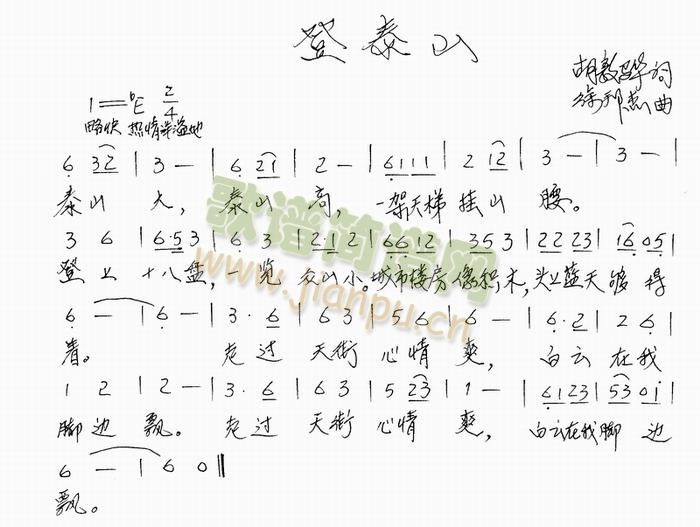 登泰山
胡敦骅词
徐邦杰曲
1=♭E 2/4
略快 热情洋溢地
6 32 | 3 — | 6 21 | 2 — | 6111 | 2 12 | 3 — | 3 — |
泰山 大, 泰山 高, 一架天梯 挂山 腰。
3 6 | 6·5 3 | 6 3 | 2·1 2 | 6612 | 35 3 | 22 23 | 16 05 |
登上 十八盘, 一览 众山小。城市楼房像积木, 头上蓝天够得
6 — | 6 — | 3·6 | 6 3 | 5 6 | 6 — | 6·2 | 2 6 |
着。 走过 天街 心情 爽, 白云 在我
1 2 | 2 — | 3·6 | 6 3 | 5 23 | 1 — | 6123 | 53 01 |
脚边 飘。 走过 天街 心情 爽, 白云在我脚 边
6 — | 6 0 ‖
飘。
歌谱简谱网
www.jianpu.cn